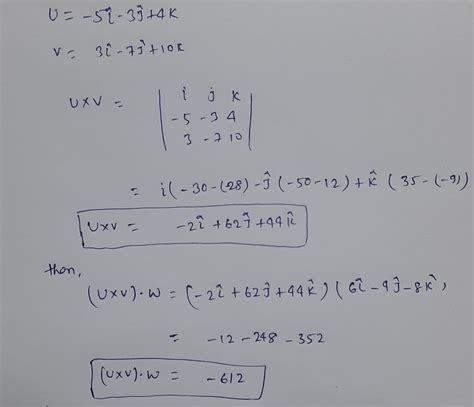 U = -5î - 3ĵ + 4k
V = 3î - 7ĵ + 10k
U×V = | î ĵ k |
-5 -3 4
3 -7 10
= i(-30-(28) - ĵ(-50-12) + k̂ (35-(-9))
U×V = -2î + 62ĵ + 44k̂
then,
(U×V)·W = (-2î + 62ĵ + 44k̂) (6î - 4ĵ - 8k̂),
= -12 - 248 - 352
(U×V)·W = -612